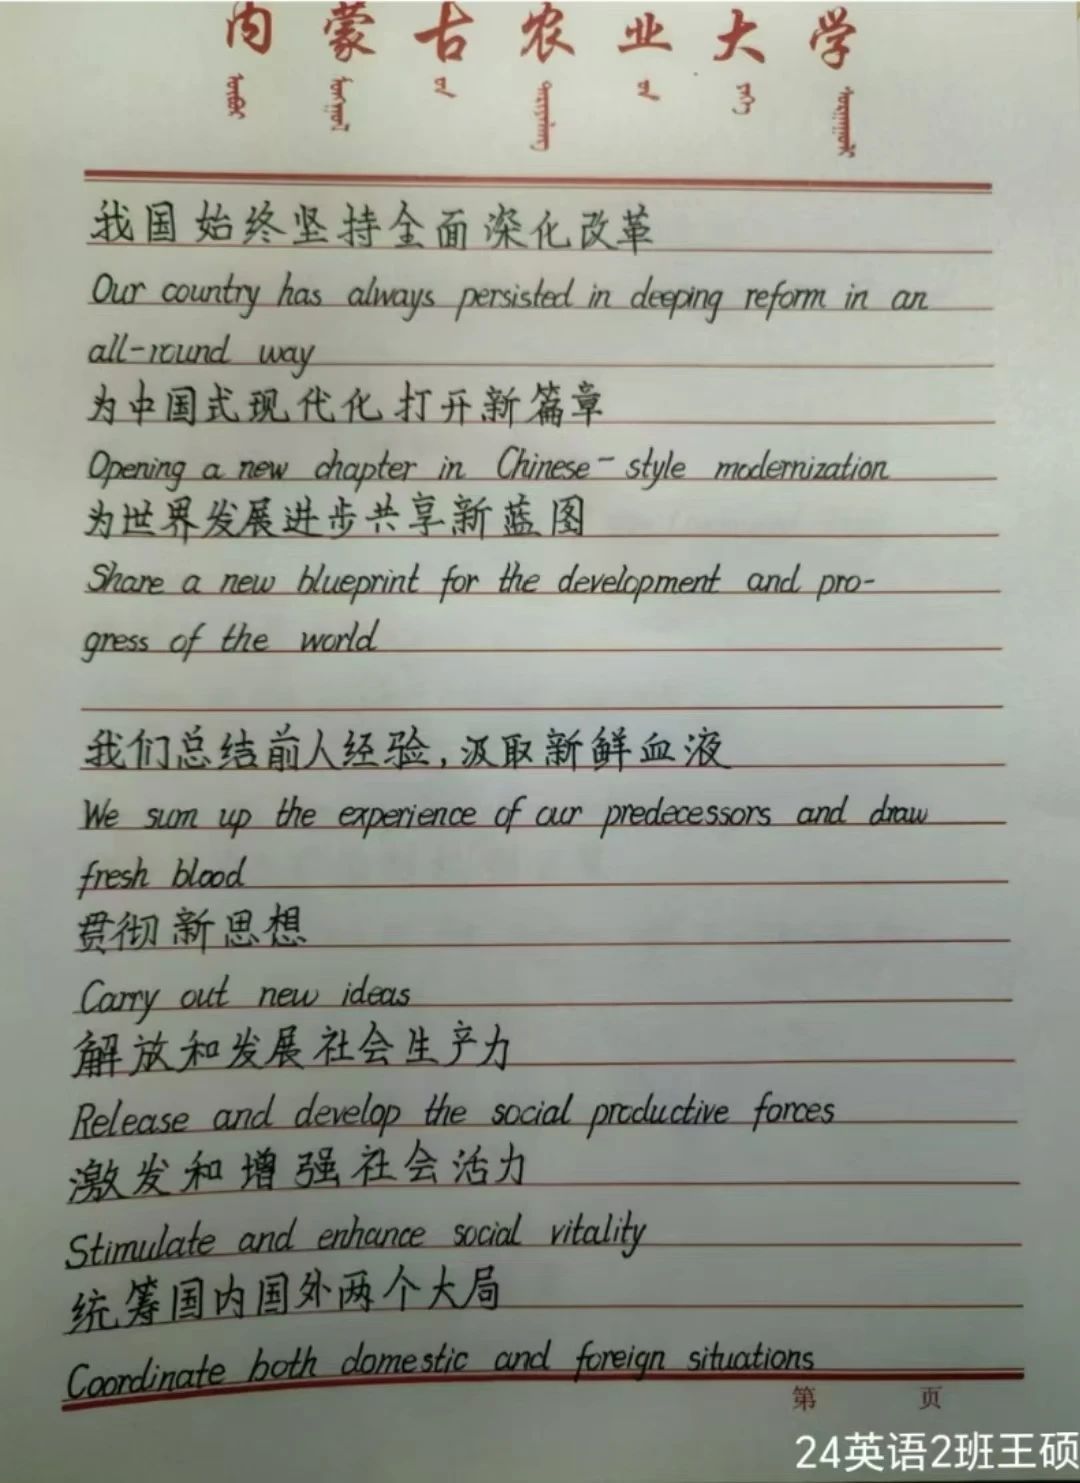 内蒙古农业大学
我国始终坚持全面深化改革
Our country has always persisted in deeping reform in an
all-round way
为中国式现代化打开新篇章
Opening a new chapter in Chinese-style modernization
为世界发展进步共享新蓝图
Share a new blueprint for the development and pro-
gress of the world
我们总结前人经验,汲取新鲜血液
We sum up the experience of our predecessors and draw
fresh blood
贯彻新思想
Carry out new ideas
解放和发展社会生产力
Release and develop the social productive forces
激发和增强社会活力
Stimulate and enhance social vitality
统筹国内国外两个大局
Coordinate both domestic and foreign situations
第 页
24英语2班王硕